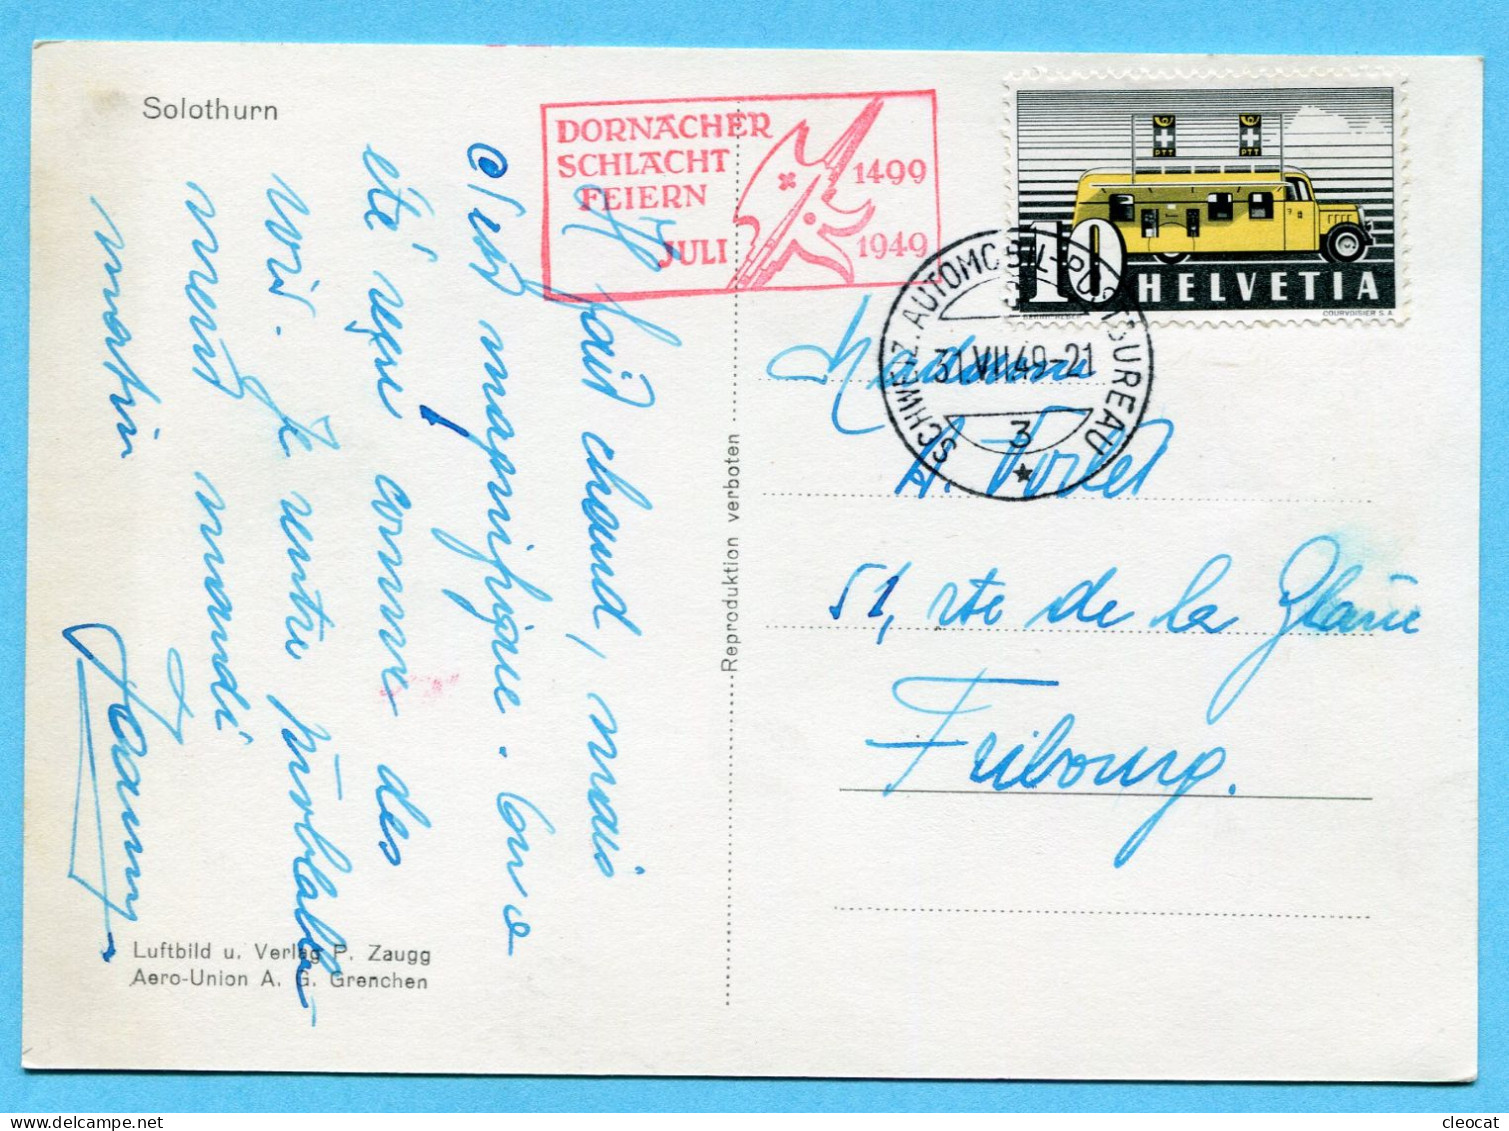 Solothurn
DORNACHER
SCHLACHT
FEIERN
JULI
1499
1949
PTT
PTT
10 HELVETIA
COURVOISIER S.A.
SCHWEIZ. AUTOMOBIL-POSTBUREAU
31.VII.49-21
3
Il fait chaud, mais
c'est magnifique. On a
été reçu comme des
rois. Je rentre probable-
ment mardi
matin
Madame
A. Vorlet
51, rte de la Glâne
Fribourg.
Reproduktion verboten
Luftbild u. Verlag P. Zaugg
Aero-Union A. G. Grenchen
cleocat